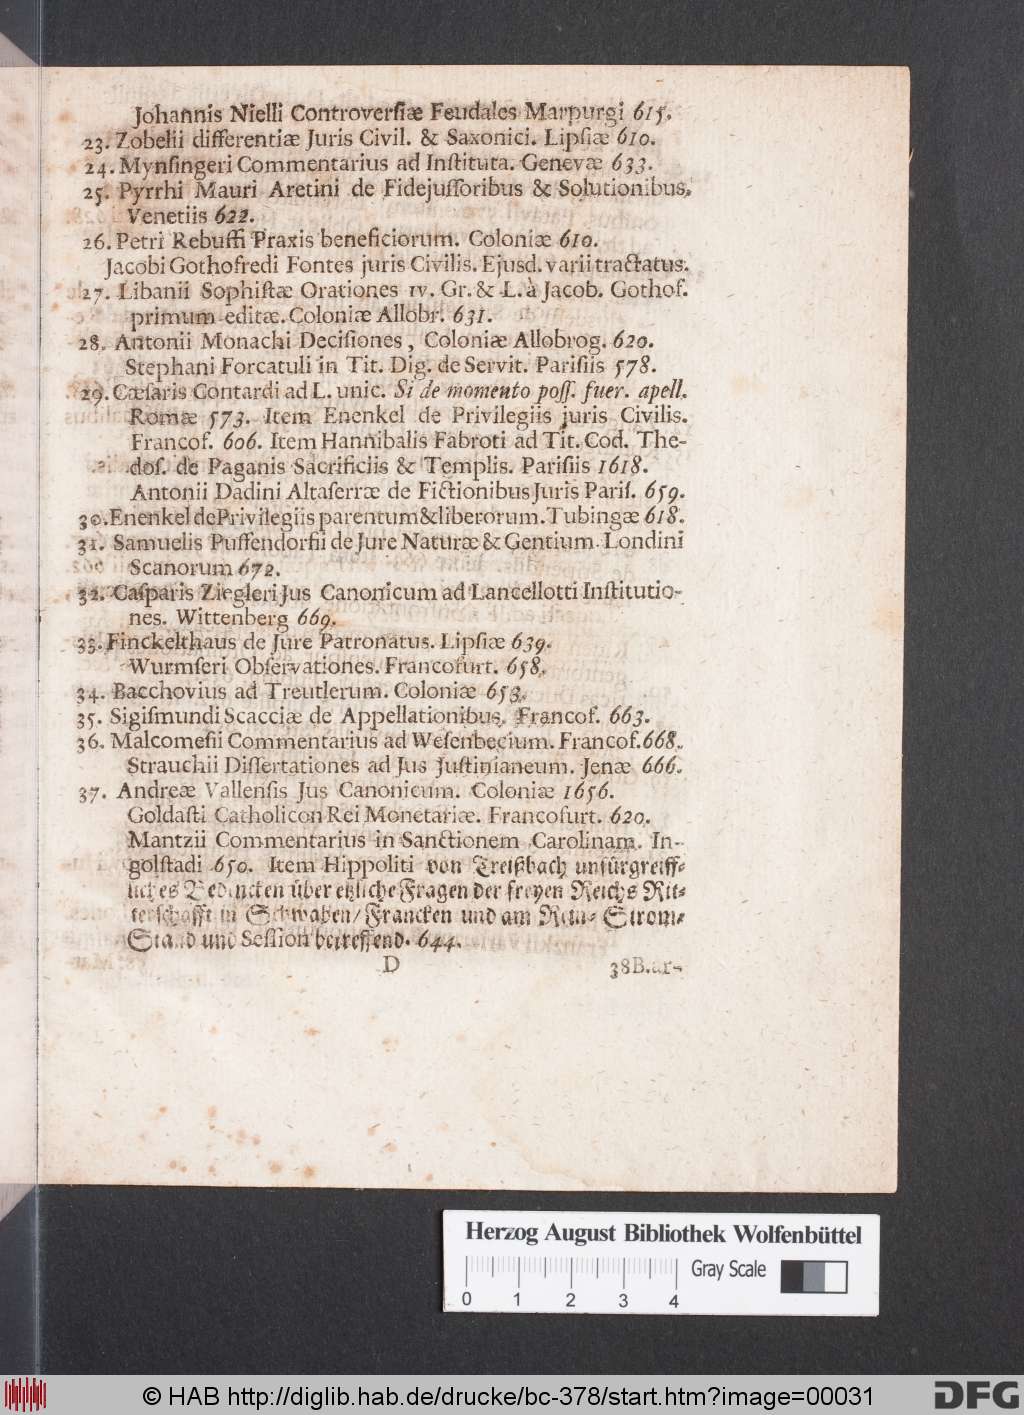 Johannis Nielli Controverſiæ Feudales Marpurgi 615.
23. Zobelii differentiæ Juris Civil. & Saxonici. Lipſiæ 610.
24. Mynſingeri Commentarius ad Inſtituta. Genevæ 633.
25. Pyrrhi Mauri Aretini de Fidejuſſoribus & Solutionibus.
Venetiis 622.
26. Petri Rebuffi Praxis beneficiorum. Coloniæ 610.
Jacobi Gothofredi Fontes juris Civilis. Ejusd. varii tractatus.
27. Libanii Sophiſtæ Orationes IV. Gr. & L. à Jacob. Gothof.
primum editæ. Coloniæ Allobr. 631.
28. Antonii Monachi Deciſiones, Coloniæ Allobrog. 620.
Stephani Forcatuli in Tit. Dig. de Servit. Pariſiis 578.
29. Cæſaris Contardi ad L. unic. Si de momento poſſ. fuer. apell.
Romæ 573. Item Enenkel de Privilegiis juris Civilis.
Francof. 606. Item Hannibalis Fabroti ad Tit. Cod. The-
doſ. de Paganis Sacrificiis & Templis. Pariſiis 1618.
Antonii Dadini Altaſerræ de Fictionibus Juris Pariſ. 659.
30. Enenkel de Privilegiis parentum & liberorum. Tubingæ 618.
31. Samuelis Puffendorfii de Jure Naturæ & Gentium. Londini
Scanorum 672.
32. Caſparis Ziegleri Jus Canonicum ad Lancellotti Inſtitutio-
nes. Wittenberg 669.
33. Finckelthaus de Jure Patronatus. Lipſiæ 639.
Wurmſeri Obſervationes. Francofurt. 658.
34. Bacchovius ad Treutlerum. Coloniæ 653.
35. Sigiſmundi Scacciæ de Appellationibus. Francof. 663.
36. Malcomeſii Commentarius ad Weſenbecium. Francof. 668.
Strauchii Diſſertationes ad Jus Juſtinianeum. Jenæ 666.
37. Andreæ Vallenſis Jus Canonicum. Coloniæ 1656.
Goldaſti Catholicon Rei Monetariæ. Francofurt. 620.
Mantzii Commentarius in Sanctionem Carolinam. In-
golſtadi 650. Item Hippoliti von Treißbach unfürgreiff-
liches Bedencken über etzliche Fragen der freyen Reichs Rit-
terſchafft in Schwaben/ Francken und am Rein-Strom-
Stand und Seſſion betreffend. 644.
D
38 Bar-
Herzog August Bibliothek Wolfenbüttel
Gray Scale
0 1 2 3 4
© HAB http://diglib.hab.de/drucke/bc-378/start.htm?image=00031
DFG